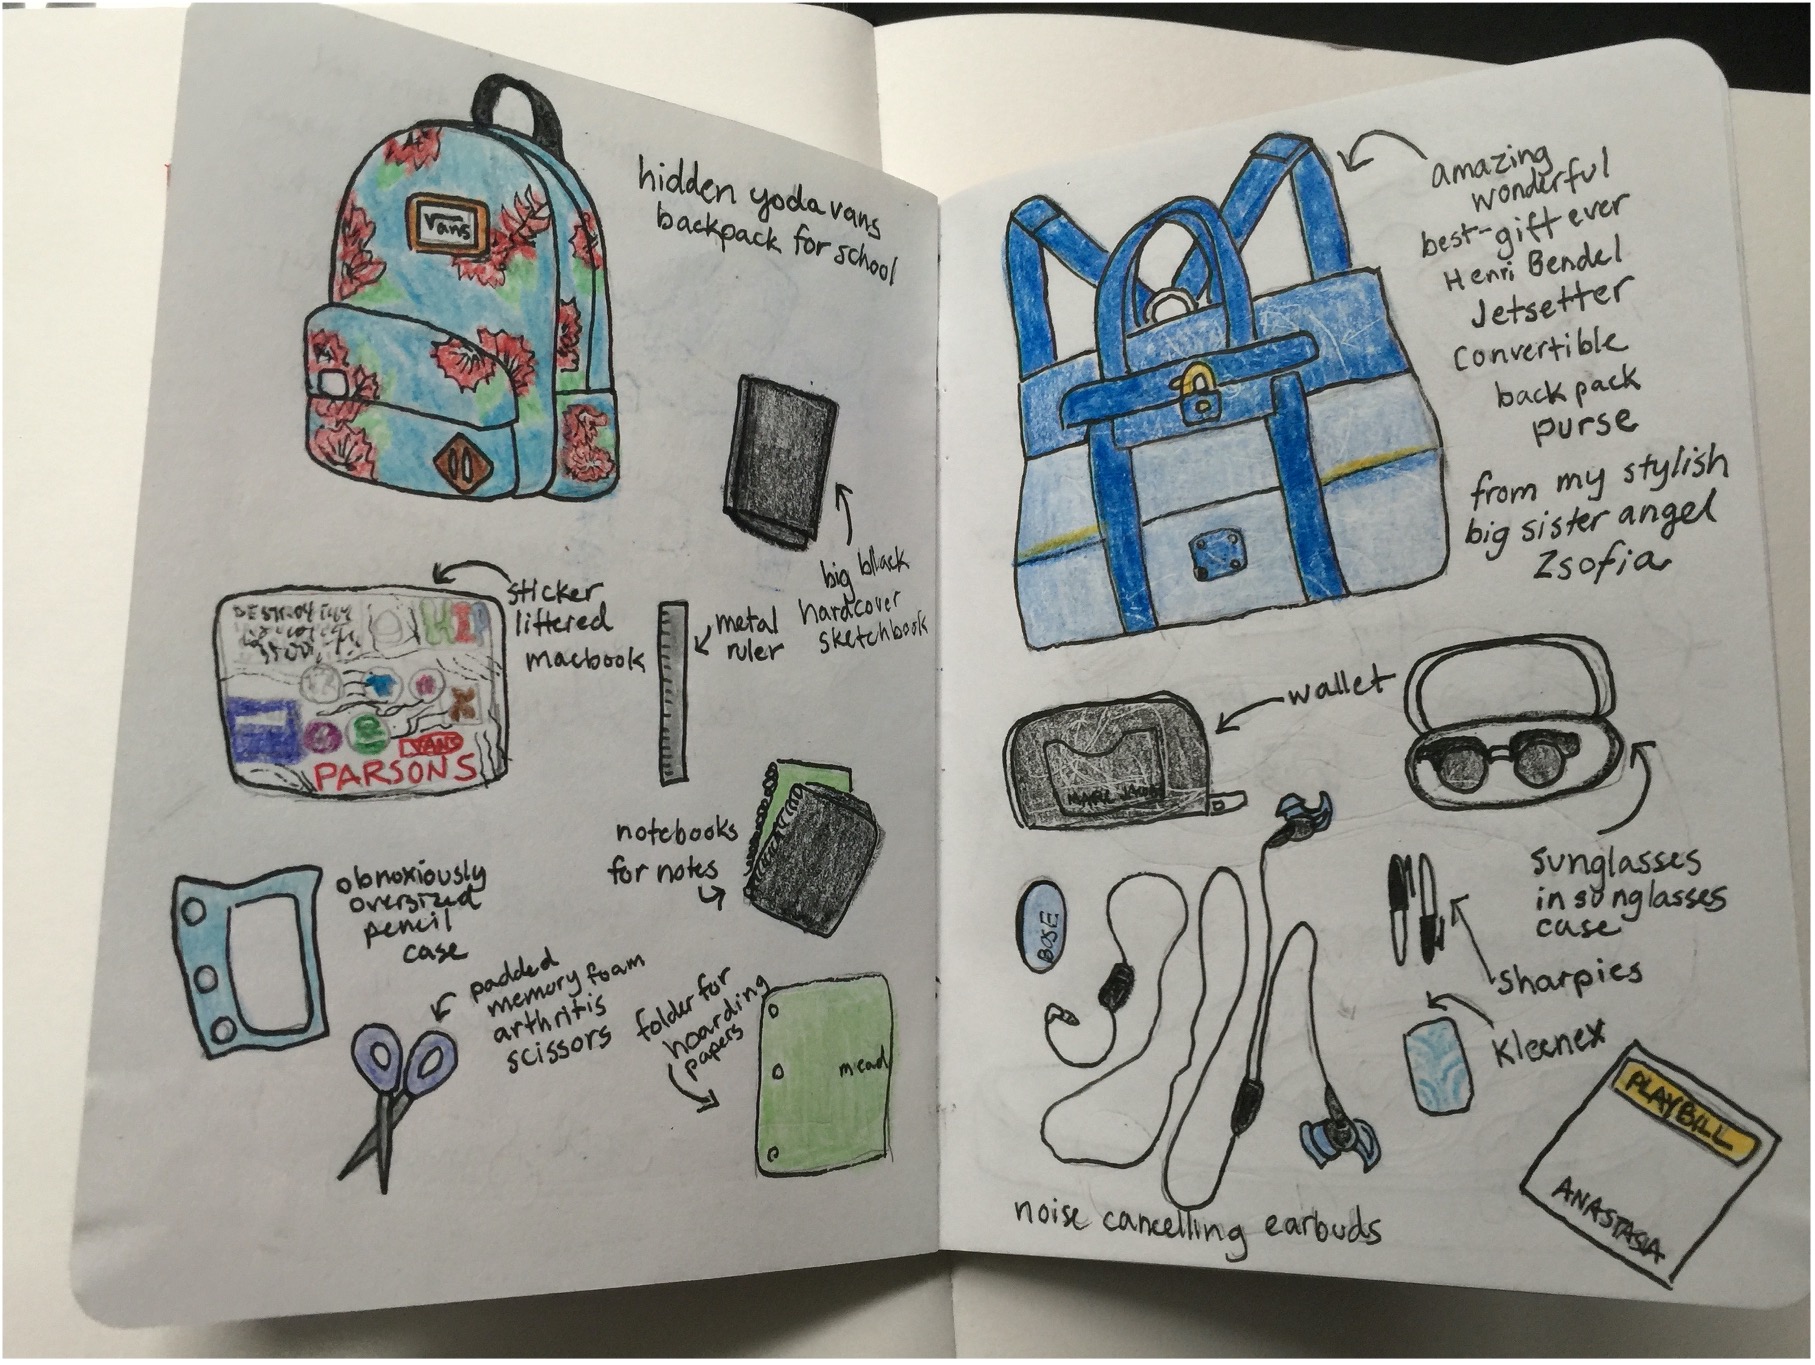 hidden yoda vans
backpack for school
Vans
big bllack
hardcover
sketchbook
sticker
littered
macbook
DESTROY
HIP
VANS
PARSONS
metal
ruler
notebooks
for notes
obnoxiously
oversized
pencil
case
padded
memory foam
arthritis
scissors
folder for
hoarding
papers
mead
amazing
wonderful
best-gift ever
Henri Bendel
Jetsetter
convertible
backpack
purse
from my stylish
big sister angel
Zsofia
wallet
MARC JACOBS
sunglasses
in sunglasses
case
BOSE
sharpies
Kleenex
noise cancelling earbuds
PLAYBILL
ANASTASIA